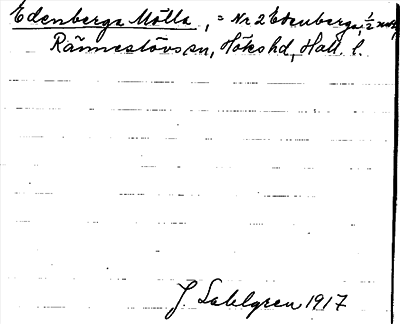 Edenbergs Mölla, = Nr 2 Edenberga, 1/2 mtl,
Ränneslövs sn, Höks hd, Hall. l.
J. Sahlgren 1917